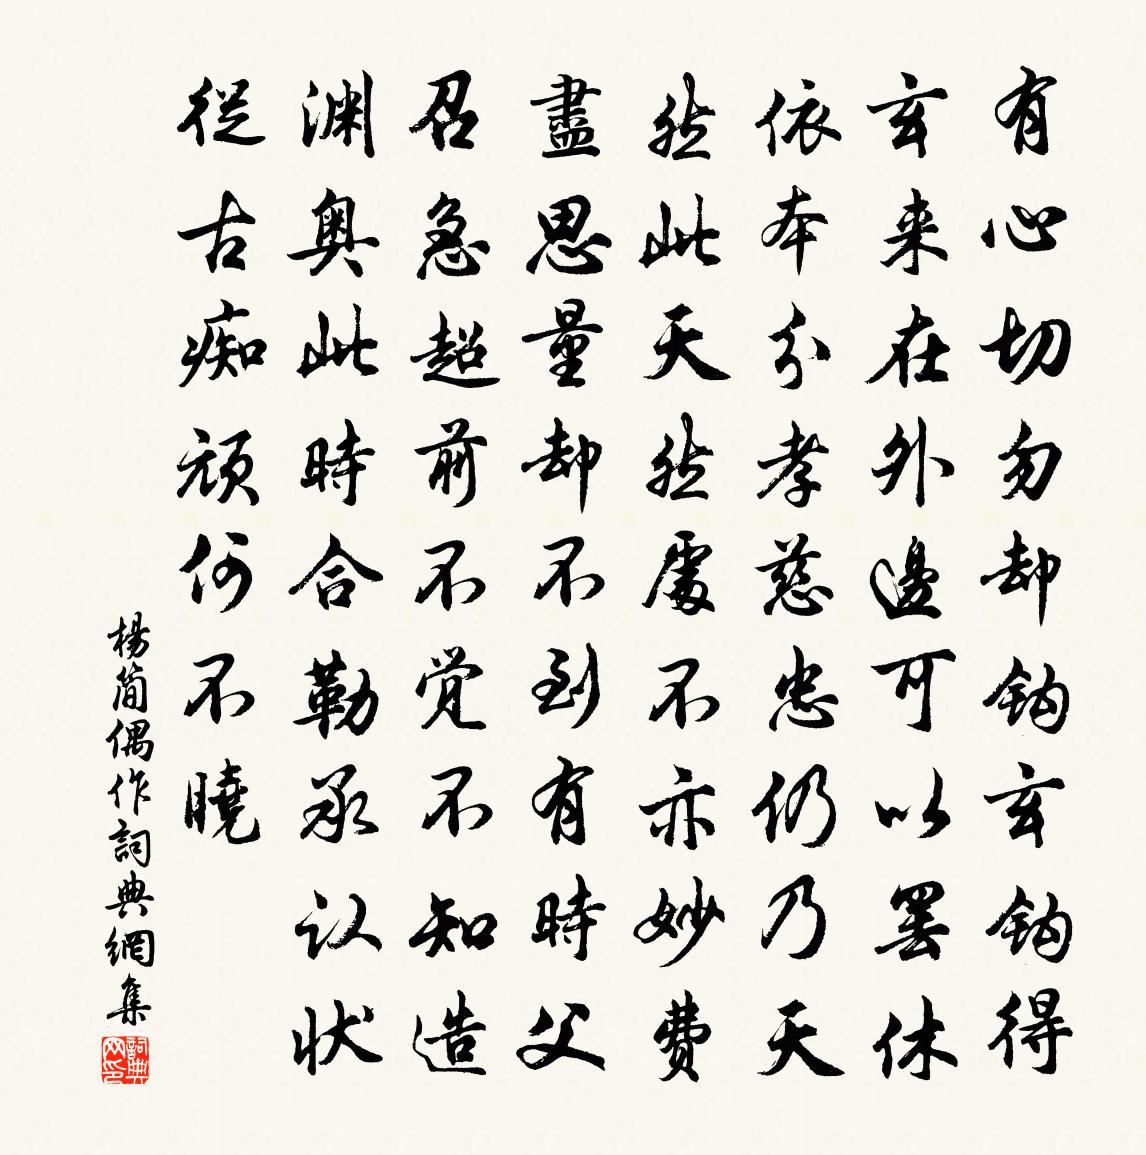 有心切勿却鈎玄鈎得
玄来在外邊可以罢休
依本分孝慈忠仍乃天
然此天然處不亦妙費
盡思量却不到有時父
召急趍前不觉不知造
渊奥此時合勒承认状
從古痴顽何不曉
楊简偶作詞典網集
詞典网